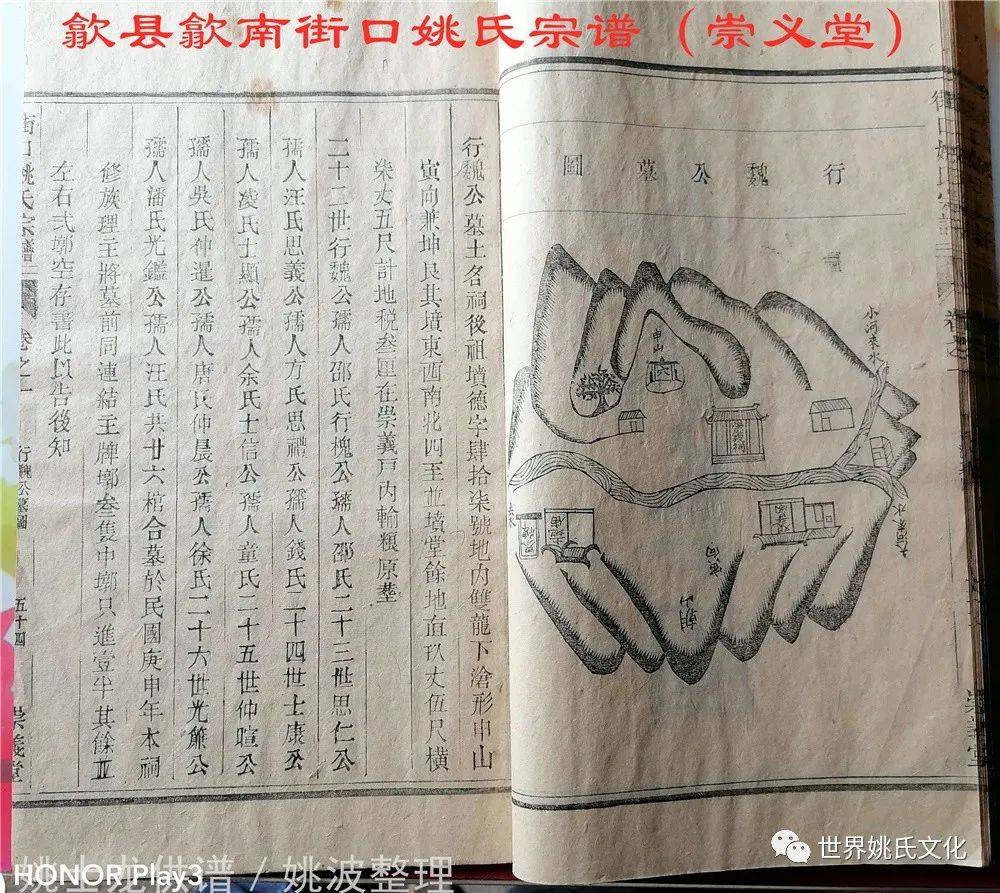 歙县歙南街口姚氏宗谱（崇义堂）
行魏公墓圖
小河来水
申山
穴
大河来水
朝山
行魏公墓土名祠後祖墳德字肆拾柒號地內雙龍下滄形申山
寅向兼坤艮其墳東西南北四至並墳堂餘地直玖丈伍尺橫
柒丈五尺計地稅叁厘在崇義戸內輸糧原塟
二十二世行魏公孺人邵氏行槐公孺人邵氏二十三世思仁公
孺人汪氏思義公孺人方氏思禮公孺人錢氏二十四世士康公
孺人凌氏士顯公孺人余氏士信公孺人童氏二十五世仲暄公
孺人吳氏仲暹公孺人唐氏仲晨公孺人徐氏二十六世光廉公
孺人潘氏光鑑公孺人汪氏共廿六棺合墓於民國庚申年本祠
修族理主將墓前同連結主牌墎叁隻中墎只進壹半其餘並
左右弍墎空存書此以告後知
街口姚氏宗譜
卷之一
行魏公墓圖
五十四
崇義堂
姚土龙供谱 / 姚波整理
HONOR Play3
世界姚氏文化